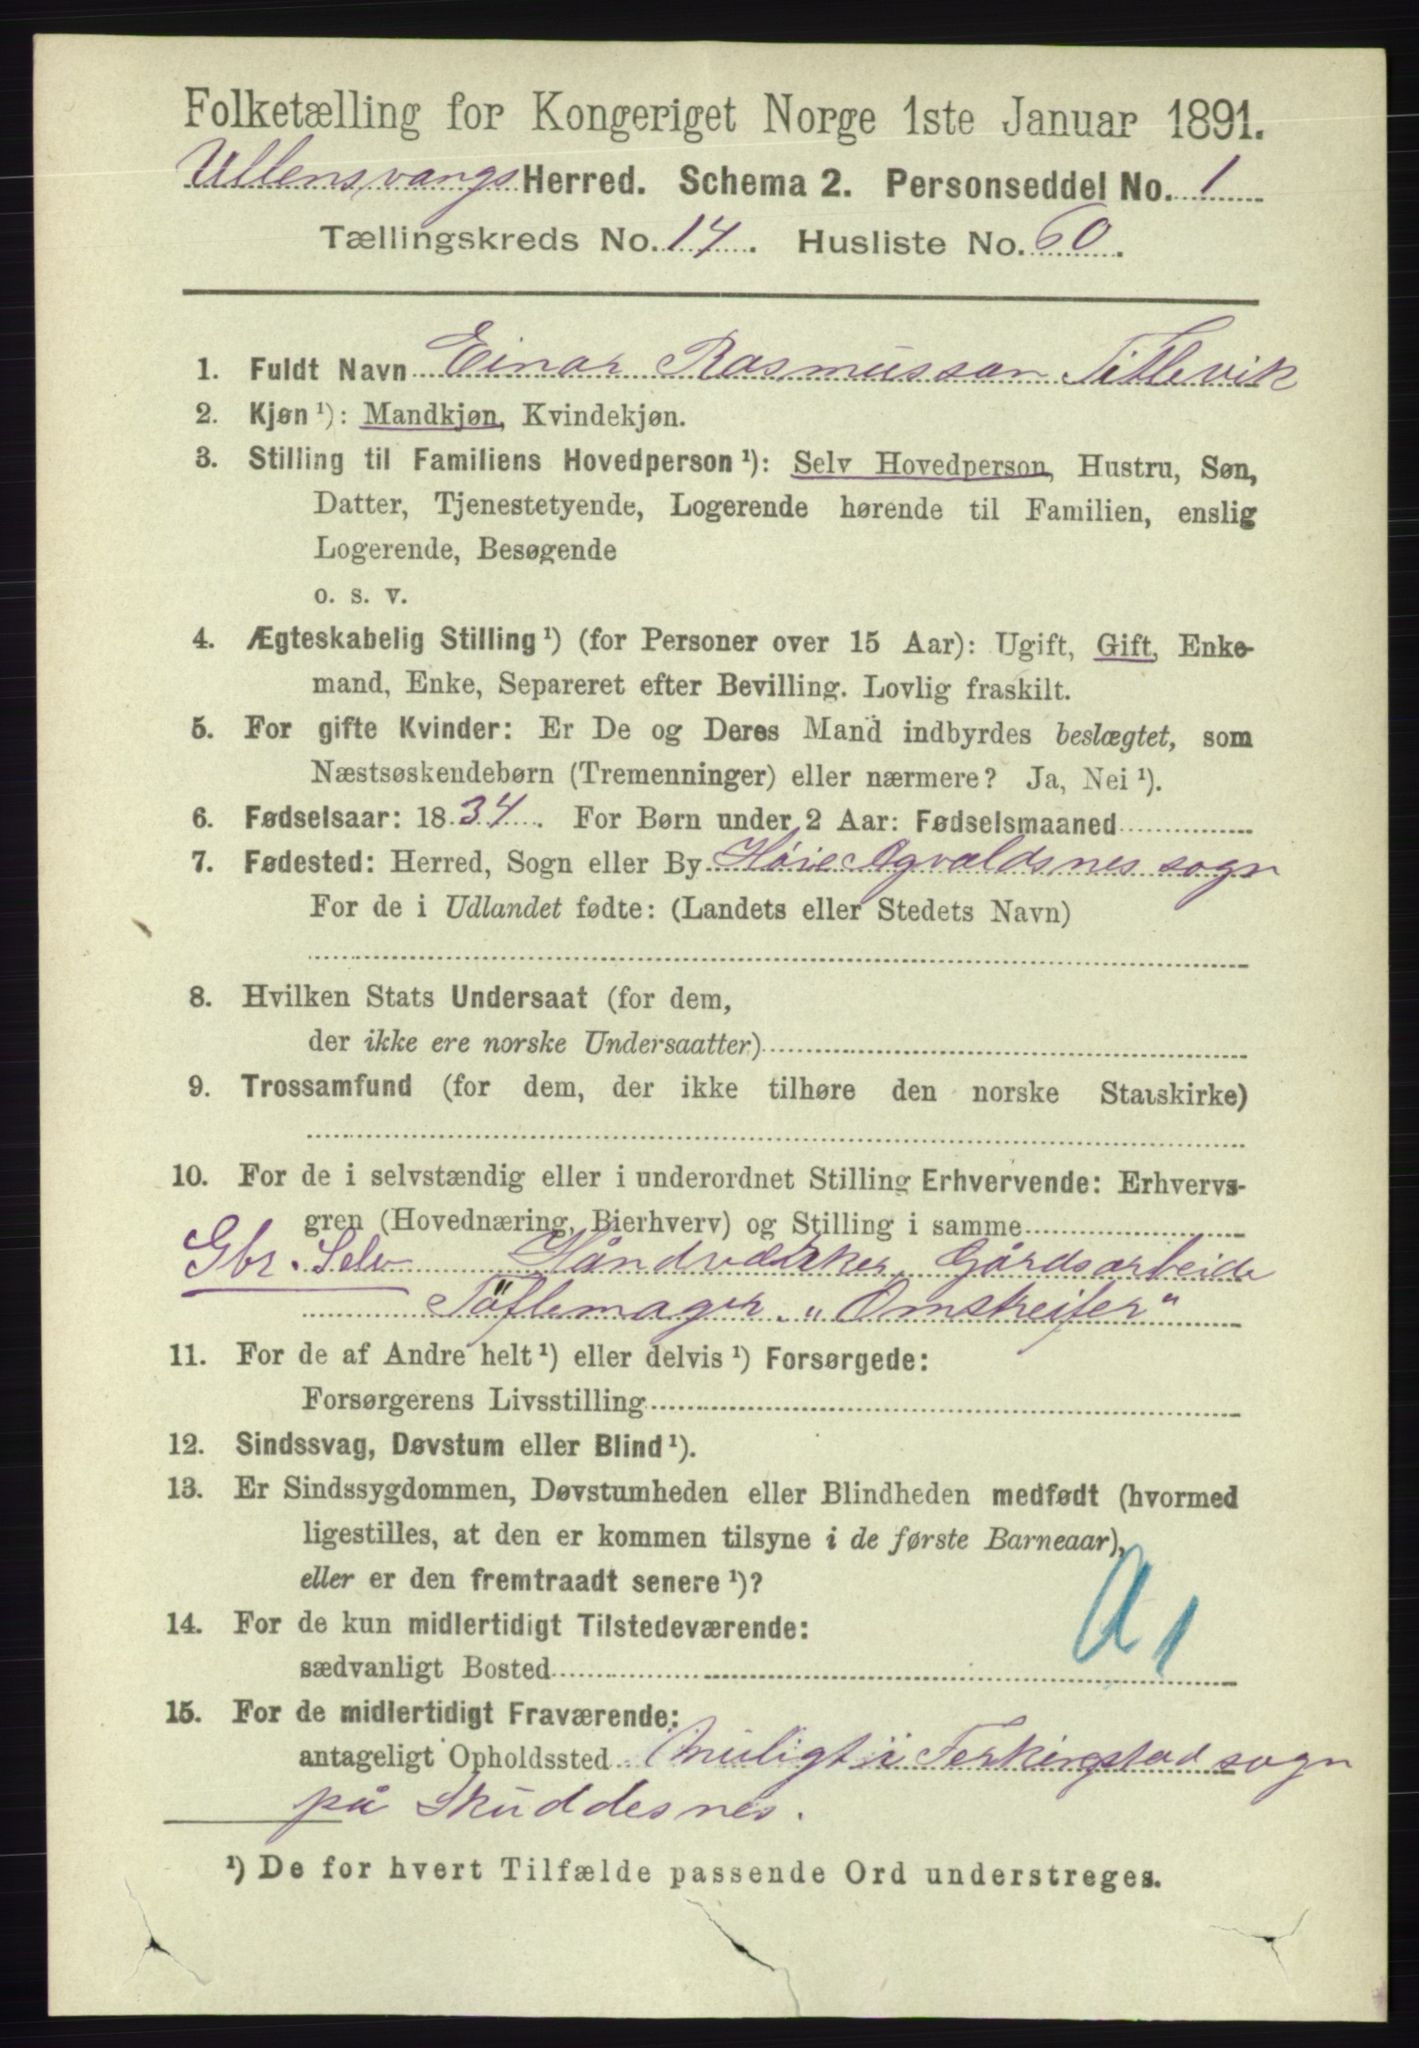 Folketælling for Kongeriget Norge 1ste Januar 1891.
Ullensvangs Herred. Schema 2. Personseddel No. 1
Tællingskreds No. 14. Husliste No. 60.
1. Fuldt Navn Einar Rasmussan Titlevik
2. Kjøn ¹): Mandkjøn, Kvindekjøn.
3. Stilling til Familiens Hovedperson ¹): Selv Hovedperson, Hustru, Søn,
Datter, Tjenestetyende, Logerende hørende til Familien, enslig
Logerende, Besøgende
o. s. v.
4. Ægteskabelig Stilling ¹) (for Personer over 15 Aar): Ugift, Gift, Enke-
mand, Enke, Separeret efter Bevilling. Lovlig fraskilt.
5. For gifte Kvinder: Er De og Deres Mand indbyrdes beslægtet, som
Næstsøskendebørn (Tremenninger) eller nærmere? Ja, Nei ¹).
6. Fødselsaar: 1834. For Børn under 2 Aar: Fødselsmaaned
7. Fødested: Herred, Sogn eller By Høie Agvaldsnes sogn
For de i Udlandet fødte: (Landets eller Stedets Navn)
8. Hvilken Stats Undersaat (for dem,
der ikke ere norske Undersaatter)
9. Trossamfund (for dem, der ikke tilhøre den norske Statskirke)
10. For de i selvstændig eller i underordnet Stilling Erhvervende: Erhvervs-
gren (Hovednæring, Bierhverv) og Stilling i samme
Gbr. Selv Håndværker, Gårdsarbeide
Töflemager. "Omstreifer"
11. For de af Andre helt ¹) eller delvis ¹) Forsørgede:
Forsørgerens Livsstilling
12. Sindssvag, Døvstum eller Blind ¹).
13. Er Sindssygdommen, Døvstumheden eller Blindheden medfødt (hvormed
ligestilles, at den er kommen tilsyne i de første Barneaar),
eller er den fremtraadt senere ¹)?
14. For de kun midlertidigt Tilstedeværende:
sædvanligt Bosted
15. For de midlertidigt Fraværende:
antageligt Opholdssted muligt i Ferkingstad sogn
på Skuddesnes.
¹) De for hvert Tilfælde passende Ord understreges.